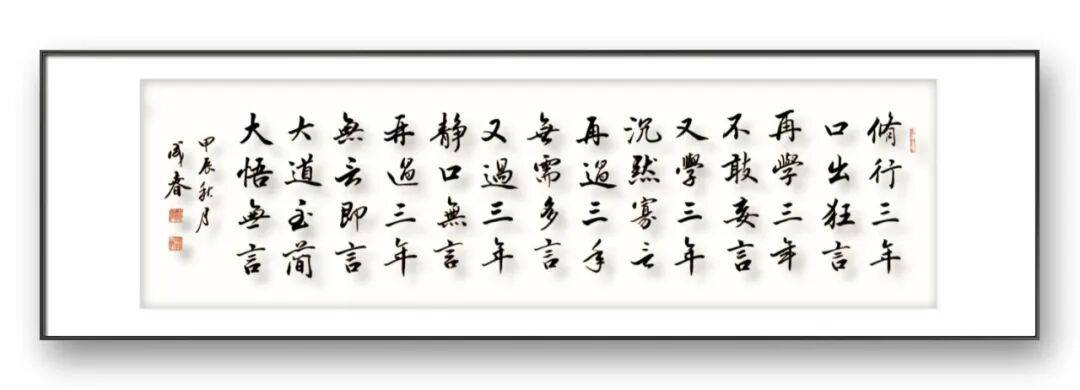 脩行三年
口出狂言
再學三年
不敢妄言
又學三年
沉默寡言
再過三年
無需多言
又過三年
静口無言
再過三年
無言即言
大道至簡
大悟無言
甲辰秋月
成春